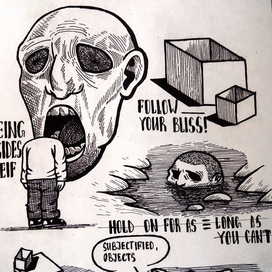 FOLLOW
YOUR BLISS!
EING
SIDES
ELF
HOLD ON FOR AS = LONG AS
YOU CAN'T
SUBJECTIFIED,
OBJECTS